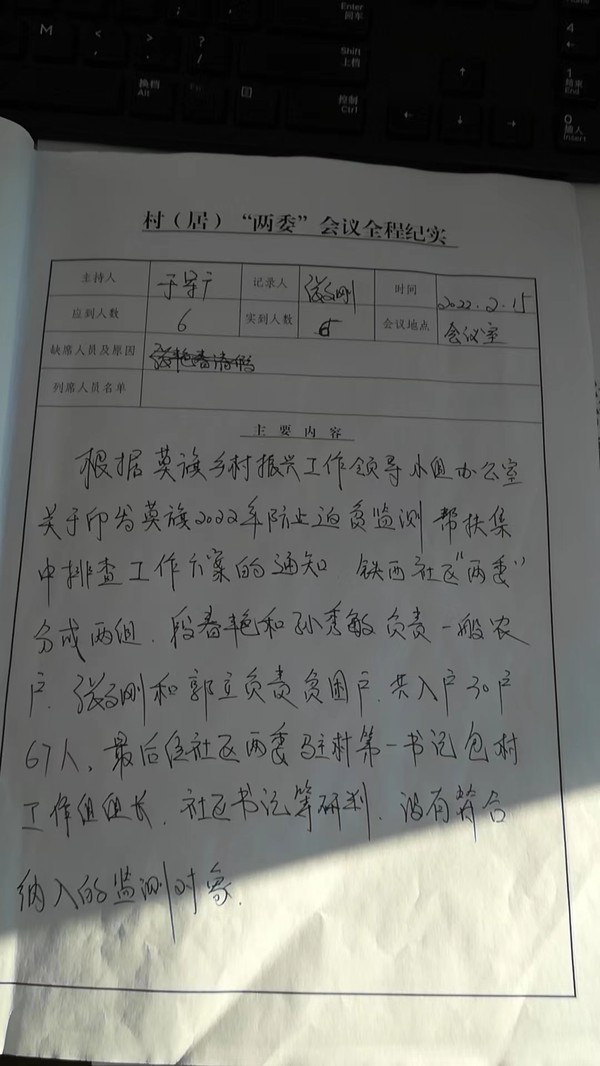 M
<
>
?
/
Enter
回车
Shift
上档
换档
Alt
控制
Ctrl
4
←
1
结束
End
0
插入
Insert
↑
← ↓ →
村（居）“两委”会议全程纪实
主持人 于 记录人 张 刚 时间 2022.2.15
应到人数 6 实到人数 6 会议地点 会议室
缺席人员及原因
列席人员名单
主要内容
根据莫旗乡村振兴工作领导小组办公室
关于印发莫旗2022年防止返贫监测帮扶集
中排查工作方案的通知.铁西社区“两委”
分成两组.段春艳和孙秀敏负责一般农
户.张 刚和郭立负责贫困户.共入户30户
67人.最后经社区两委驻村第一书记包村
工作组组长.社区书记等研判.没有符合
纳入的监测对象.